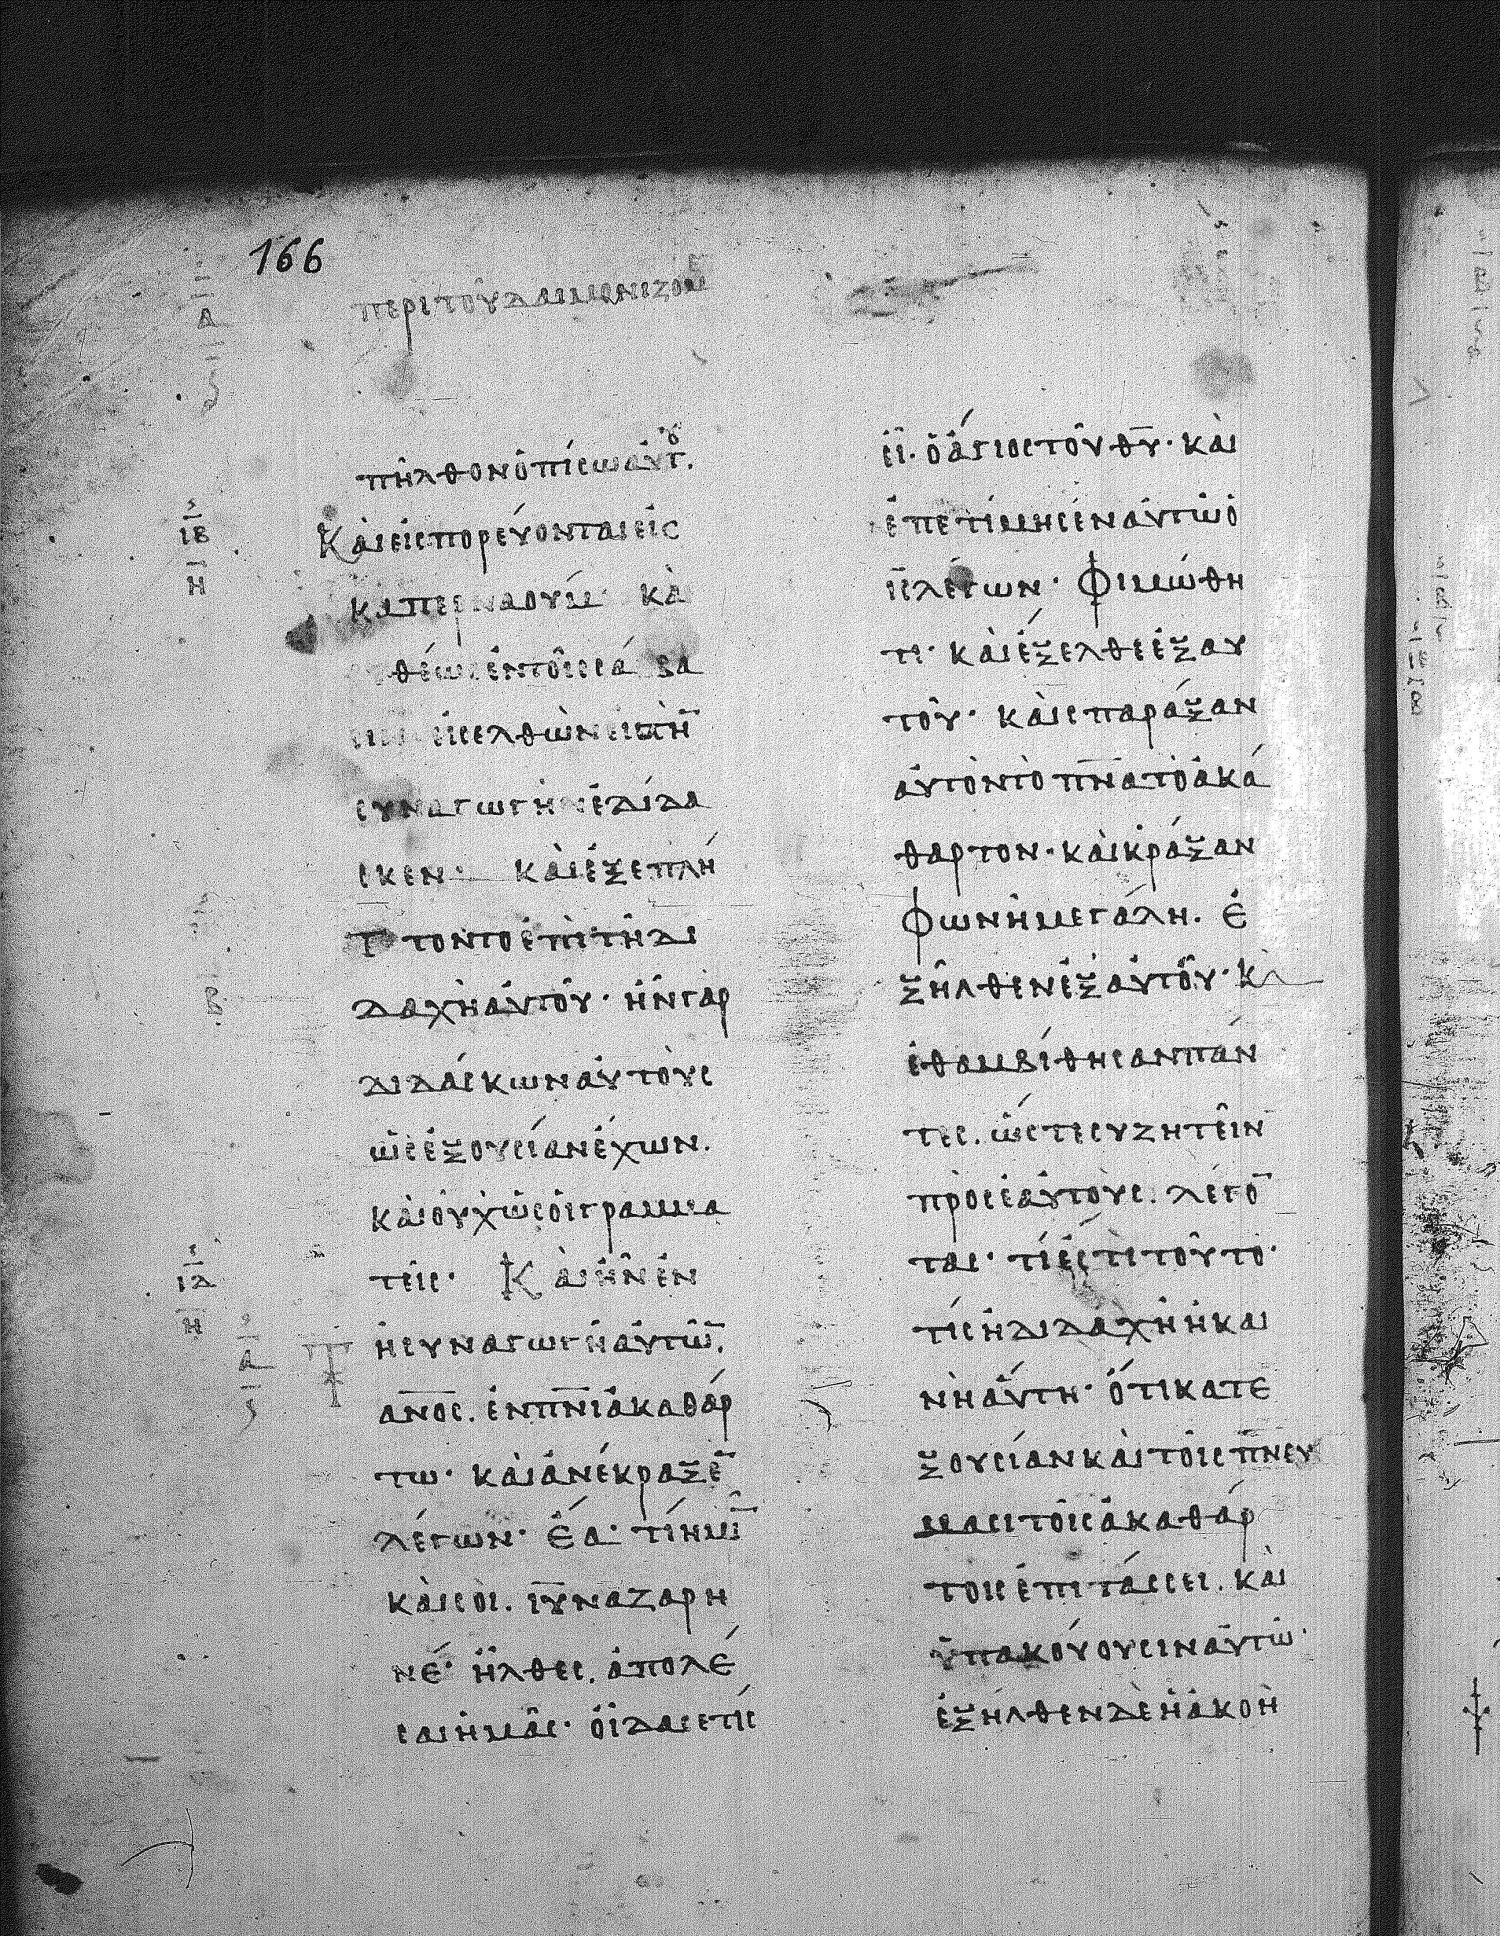 166
περιτοῦδαιμονιζομε
πῆλθονὀπίσωαὐτου.
Καὶεἰσπορεύονταιεἰς
καπερναούμ· καὶ
θέωςἐντοῖςσάβΒα
εἰσελθὼνεἰςτὴν̅
συναγωγὴνἐδίδα
σκεν· καὶἐξεπλή
τοντοἐπὶτῆδι
δαχῆαὐτοῦ· ἦνγὰρ
διδάσκωναὐτοὺς
ὡςἐξουσίανἔχων.
καὶοὐχὡςοἱγραμμα
τεῖς· Καὶἦνἐν
ἡσυναγωγῆαὐτῶ̅.
α̅ν̅ο̅ς. ἐνπ̅ν̅ιἀκαθάρ
τω· καὶἀνέκραξε̅
λέγων· ἔα· τίἡμῖ̅
καὶσοι. ι̅υ̅ναζαρη
νέ· ἦλθες. ἀπολέ
σαιἡμᾶς· οἶδάσετίς
εἶ. ὁἅγιοςτοῦθ̅υ̅· καὶ
ἐπετίμησεναὐτῶὁ
ι̅ς̅λέγων· Φιμώθη
τι· καὶἔξελθεἐξαυ
τοῦ· καὶσπαράξαν
αὐτὸντὸπ̅ν̅ατὸἀκά
θαρτον· καὶκράξαν
φωνῆμεγάλη. ἐ
ξῆλθενἐξαὐτοῦ· κὰ
ἐθαμβίθησανπάν
τες. ὥστεσυζητεῖν
πρὸςἑαὐτοὺς. λέγο̅
τας· τίἐστὶτοῦτο·
τίςἡδιδαχὴἡκαι
νὴαὕτη· ὅτικατε
ξουσίανκαὶτοῖςπνευ
μασιτοῖςἀκαθάρ
τοιςἐπιτάσσει. καὶ
ὑπακούουσιναὐτῶ·
ἐξῆλθενδὲἡἀκοὴ